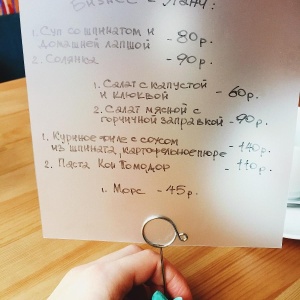 Бизнес - Ланч:
1. Суп со шпинатом и
домашней лапшой - 80р.
2. Солянка - 90р.
1. Салат с капустой
и клюквой - 60р.
2. Салат мясной с
горчичной заправкой - 90р.
1. Куриное филе с соусом
из шпината, картофельное пюре - 140р.
2. Паста Кон Помодор - 110р.
1. Морс - 45р.